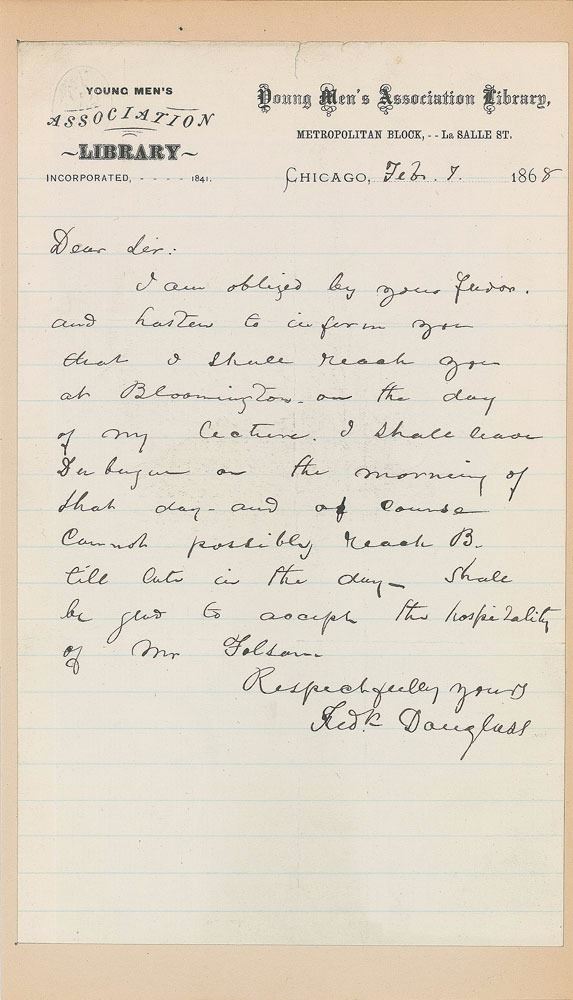 YOUNG MEN'S
ASSOCIATION
~LIBRARY~
INCORPORATED, - - - - 1841.
Young Men's Association Library,
METROPOLITAN BLOCK, - - La SALLE ST.
CHICAGO, Feb. 7. 1868
Dear Sir:
I am obliged by your favor.
and hasten to inform you
that I shall reach you
at Bloomington. on the day
of my lecture. I shall leave
Dubuque on the morning of
that day - and of course
Cannot possibly reach B.
till late in the day - Shall
be glad to accept the hospitality
of Mr Folsom
Respectfully yours
Fredk Douglass